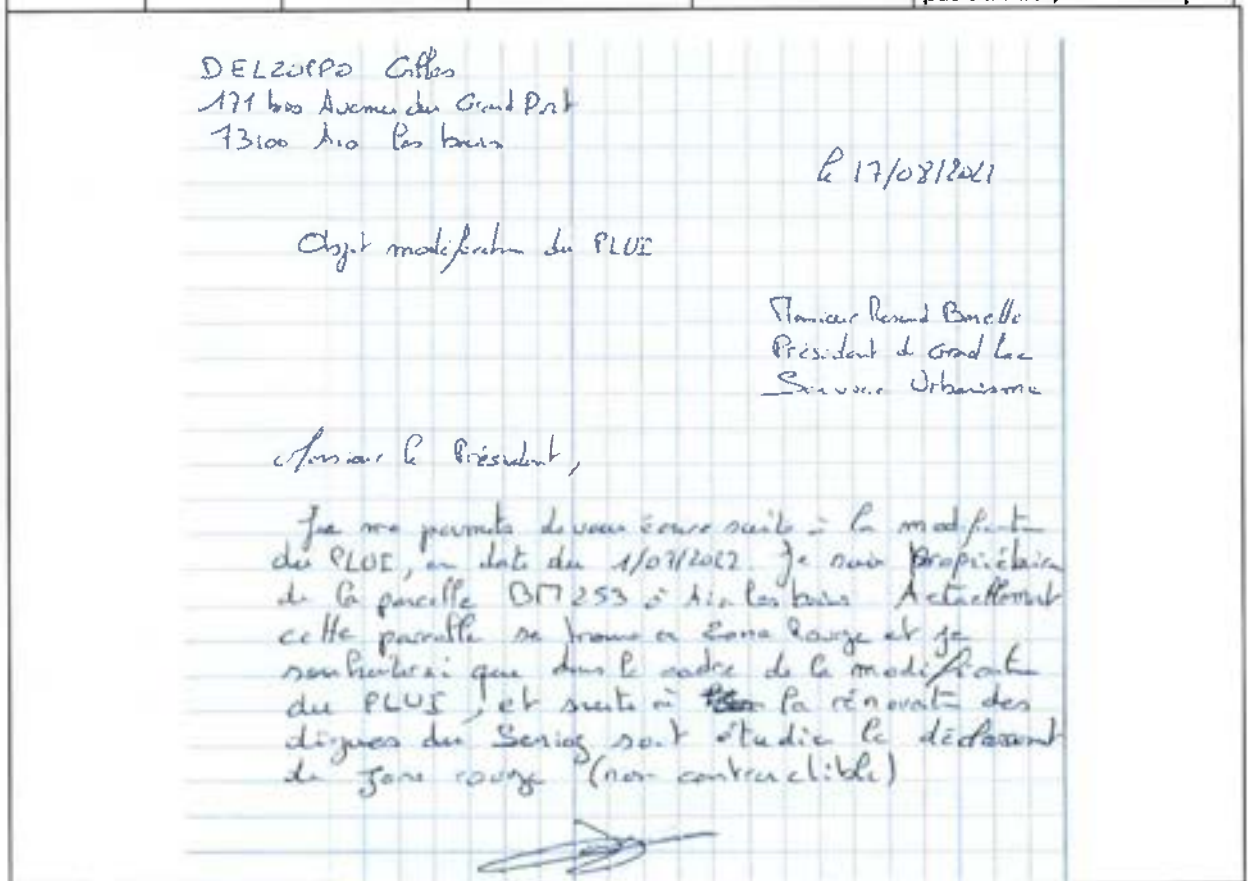 DELZOPPO Gilles
171 bis Avenue du Grand Port
73100 Aix les bains
le 17/08/2022
Objet modification du PLUI
Monsieur Renaud Beretti
Président de Grand Lac
Service Urbanisme
Monsieur le Président,
Je me permets de vous écrire suite à la modification
du PLUI, en date du 1/07/2022. Je suis Propriétaire
de la parcelle BM 253 à Aix les bains Actuellement
cette parcelle se trouve en Zone Rouge et je
souhaiterai que dans le cadre de la modification
du PLUI, et suite à la rénovation des
digues du Sierroz soit étudié le déclassement
de zone rouge (non constructible)